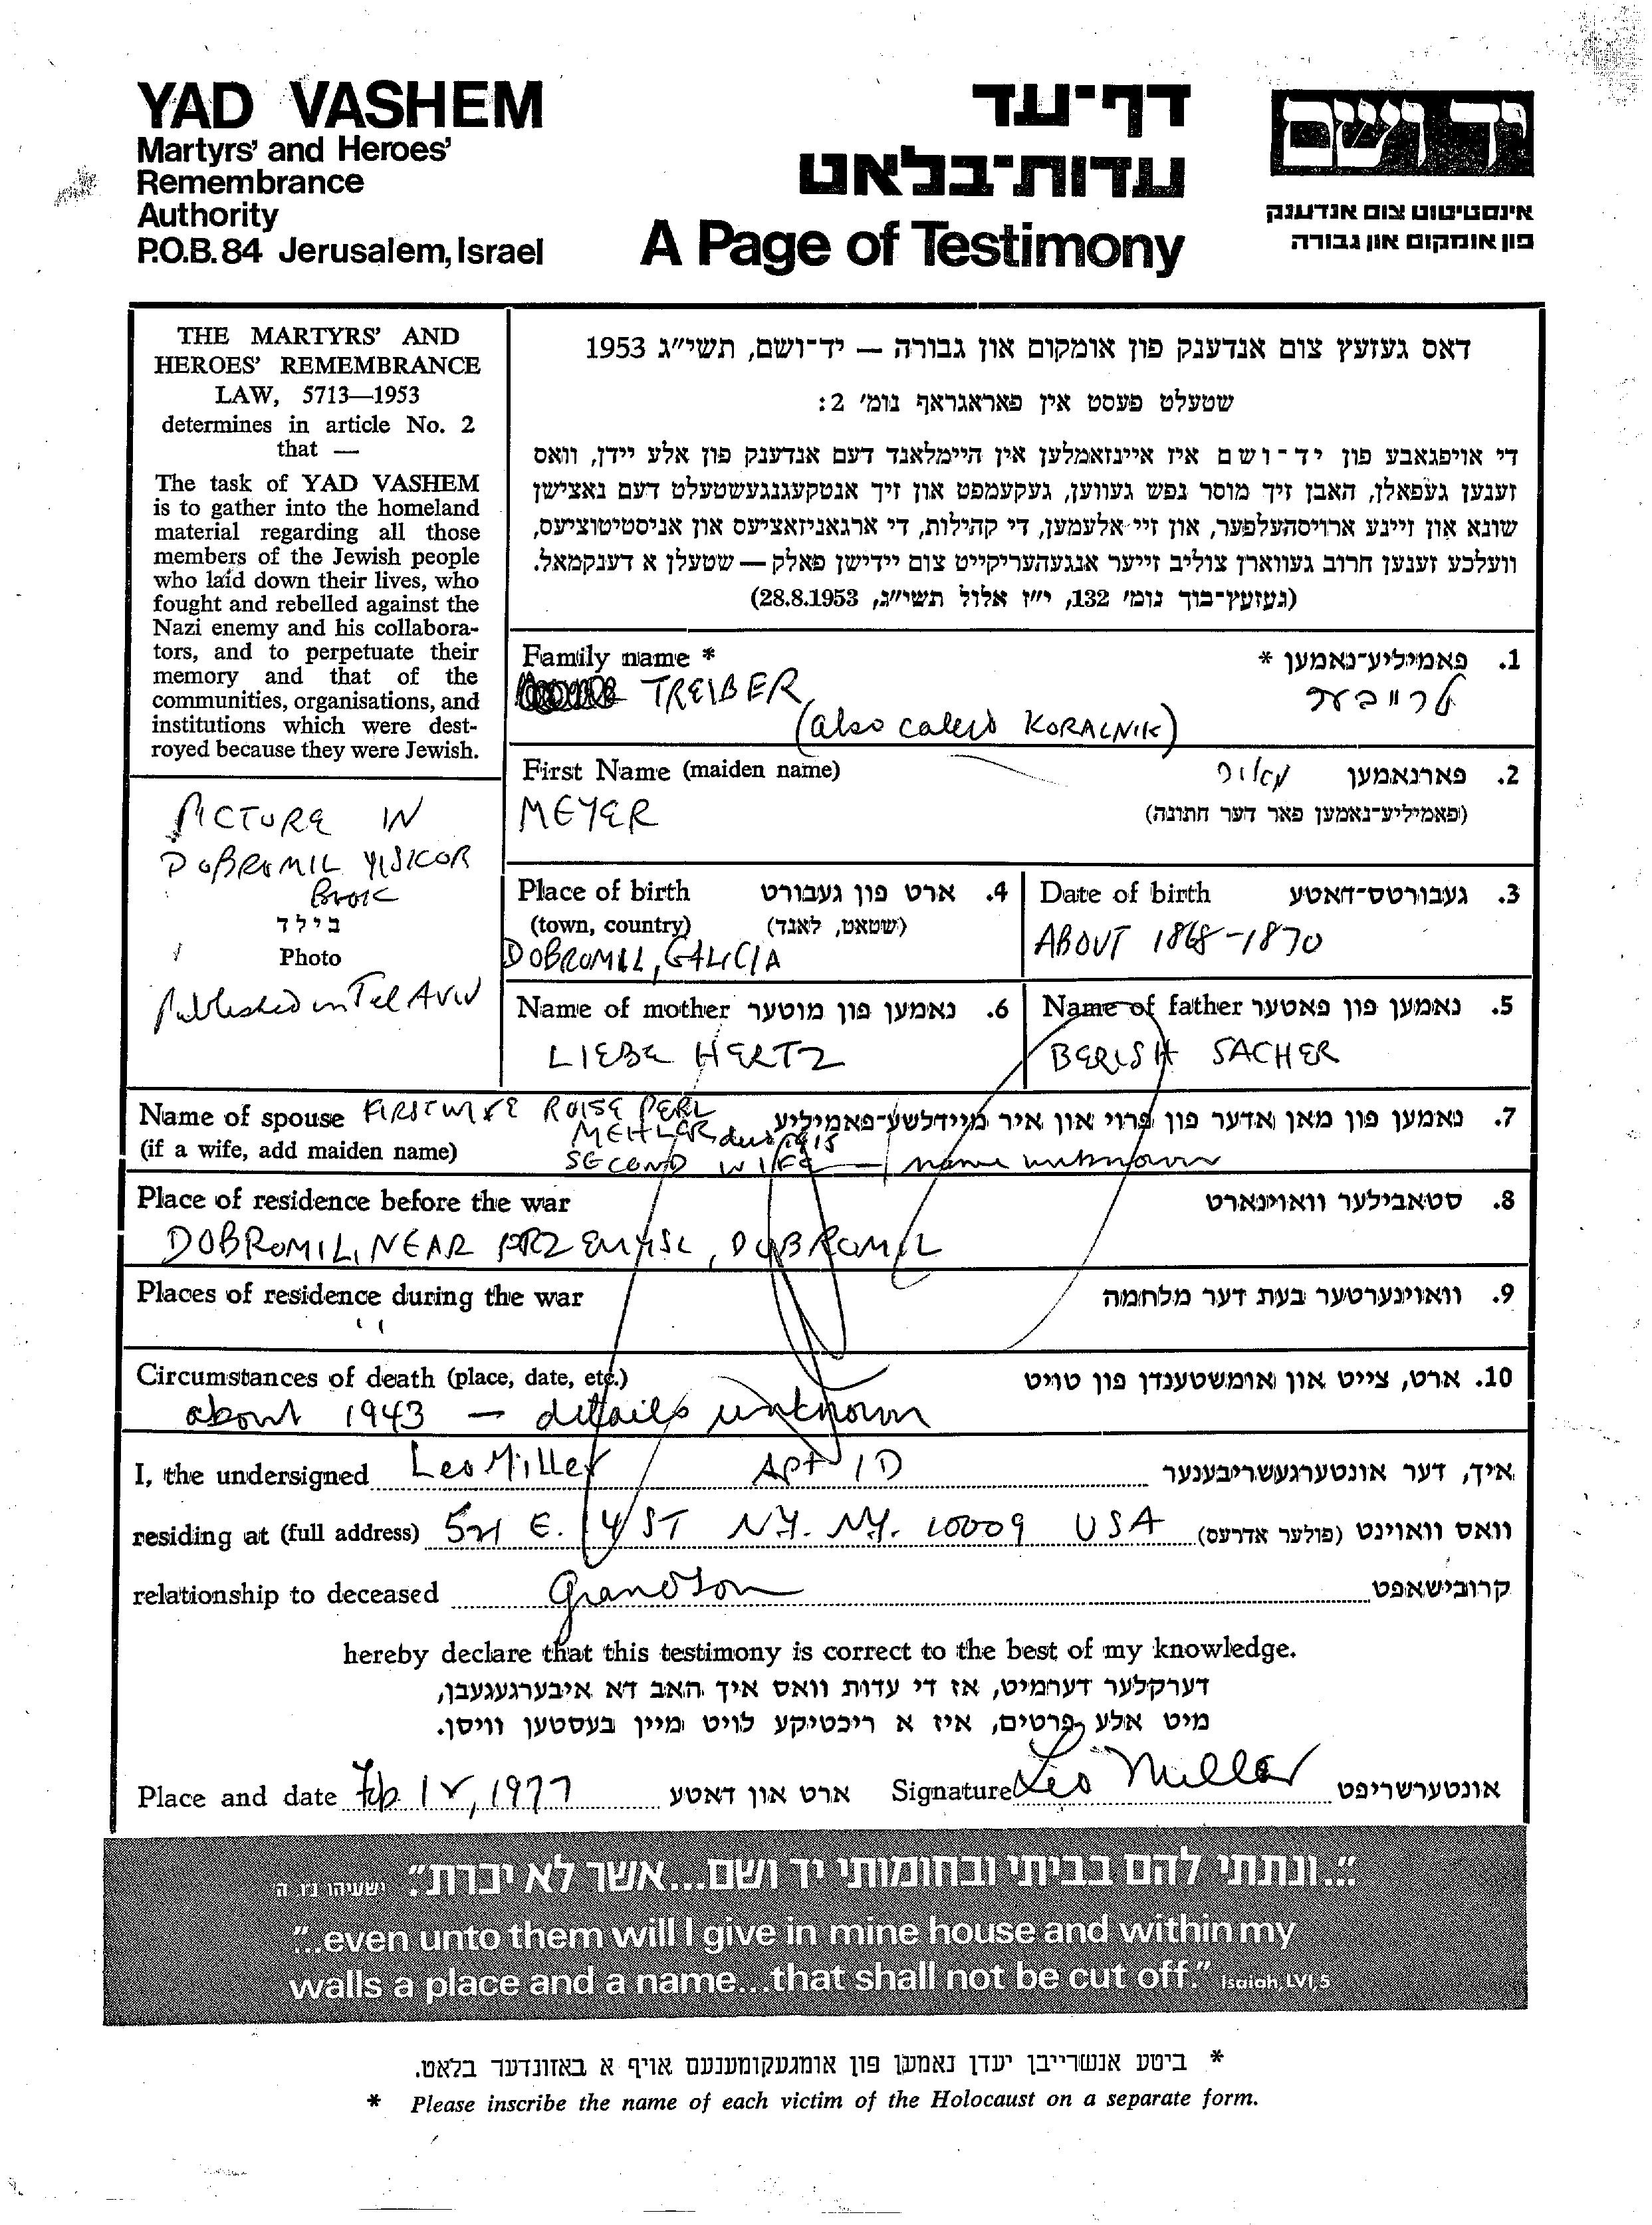 YAD VASHEM
Martyrs' and Heroes'
Remembrance
Authority
P.O.B. 84 Jerusalem, Israel
דף־עד
עדות־בלאט
A Page of Testimony
יד ושם
אינסטיטוט צום אנדענק
פון אומקום און גבורה
THE MARTYRS' AND
HEROES' REMEMBRANCE
LAW, 5713—1953
determines in article No. 2
that —
The task of YAD VASHEM
is to gather into the homeland
material regarding all those
members of the Jewish people
who laid down their lives, who
fought and rebelled against the
Nazi enemy and his collabora-
tors, and to perpetuate their
memory and that of the
communities, organisations, and
institutions which were dest-
royed because they were Jewish.
דאס געזעץ צום אנדענק פון אומקום און גבורה — יד־ושם, תשי״ג 1953
שטעלט פעסט אין פאראגראף נומ׳ 2:
די אויפגאבע פון יד־ושם איז איינזאמלען אין היימלאנד דעם אנדענק פון אלע יידן, וואס
זענען געפאלן, האבן זיך מוסר נפש געווען, געקעמפט און זיך אנטקעגנגעשטעלט דעם נאצישן
שונא און זיינע ארויסהעלפער, און זיי אלעמען, די קהילות, די ארגאניזאציעס און אניסטיטוציעס,
וועלכע זענען חרוב געווארן צוליב זייער אנגעהעריקייט צום יידישן פאלק — שטעלן א דענקמאל.
(געזעץ־בוך נומ׳ 132, י״ז אלול תשי״ג, 28.8.1953)
Family name * פאמיליע־נאמען * .1
TREIBER טרייבער
(also called KORALNIK)
First Name (maiden name) פארנאמען .2
MEYER (פאמיליע־נאמען פאר דער חתונה)
PICTURE IN
DOBROMIL YISKOR
BOOK
בילד
Photo
Published in Tel Aviv
Place of birth ארט פון געבורט .4
(town, country) (שטאט, לאנד)
DOBROMIL, GALICIA
Date of birth געבורטס־דאטע .3
ABOUT 1868-1870
Name of mother נאמען פון מוטער .6
LIEBE HERTZ
Name of father נאמען פון פאטער .5
BERISH SACHER
Name of spouse FIRST WIFE ROISE PERL נאמען פון מאן אדער פון פרוי און איר מיידלשע־פאמיליע .7
MEHLER died 1915
(if a wife, add maiden name) SECOND WIFE — name unknown
Place of residence before the war סטאבילער וואוינארט .8
DOBROMIL, NEAR PRZEMYSL, DOBROMIL
Places of residence during the war וואוינערטער בעת דער מלחמה .9
Circumstances of death (place, date, etc.) ארט, צייט און אומשטענדן פון טויט .10
about 1943 — details unknown
I, the undersigned Leo Miller Apt 1D איך, דער אונטערגעשריבענער
residing at (full address) 521 E. 14 ST N.Y. N.Y. 10009 USA וואס וואוינט (פולער אדרעס)
relationship to deceased Grandson קרובישאפט
hereby declare that this testimony is correct to the best of my knowledge.
דערקלער דערמיט, אז די עדות וואס איך האב דא איבערגעגעבן,
מיט אלע פרטים, איז א ריכטיקע לויט מיין בעסטען וויסן.
Place and date Feb 12, 1977 ארט און דאטע Signature Leo Miller אונטערשריפט
"...ונתתי להם בביתי ובחומותי יד ושם...אשר לא יכרת". ישעיהו נ״ו, ה׳
"...even unto them will I give in mine house and within my
walls a place and a name...that shall not be cut off." Isaiah, LVI, 5
* ביטע אנשרייבן יעדן נאמען פון אומגעקומענעם אויף א באזונדער בלאט.
* Please inscribe the name of each victim of the Holocaust on a separate form.